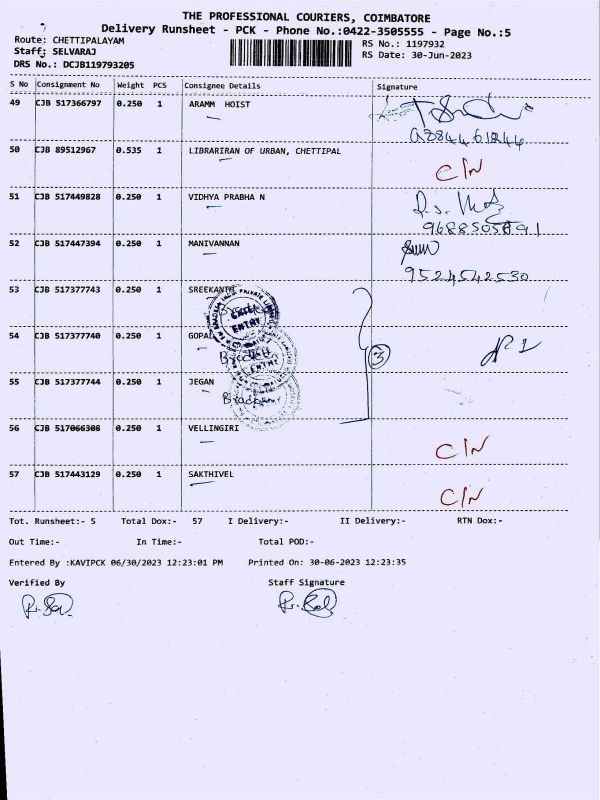 THE PROFESSIONAL COURIERS, COIMBATORE
Delivery Runsheet - PCK - Phone No.:0422-3505555 - Page No.:5
Route: CHETTIPALAYAM
RS No.: 1197932
Staff: SELVARAJ
RS Date: 30-Jun-2023
DRS No.: DCJB119793205
S No Consignment No Weight PCS Consignee Details Signature
49 CJB 517366797 0.250 1 ARAMM HOIST
50 CJB 89512967 0.535 1 LIBRARIRAN OF URBAN, CHETTIPAL
C/N
51 CJB 517449828 0.250 1 VIDHYA PRABHA N
52 CJB 517447394 0.250 1 MANIVANNAN
9524542530
53 CJB 517377743 0.250 1 SREEKANTH
ENTRY
54 CJB 517377740 0.250 1 GOPAL
ENTRY
3
55 CJB 517377744 0.250 1 JEGAN
56 CJB 517066308 0.250 1 VELLINGIRI
C/N
57 CJB 517443129 0.250 1 SAKTHIVEL
C/N
Tot. Runsheet:- 5 Total Dox:- 57 I Delivery:- II Delivery:- RTN Dox:-
Out Time:- In Time:- Total POD:-
Entered By :KAVIPCK 06/30/2023 12:23:01 PM Printed On: 30-06-2023 12:23:35
Verified By Staff Signature